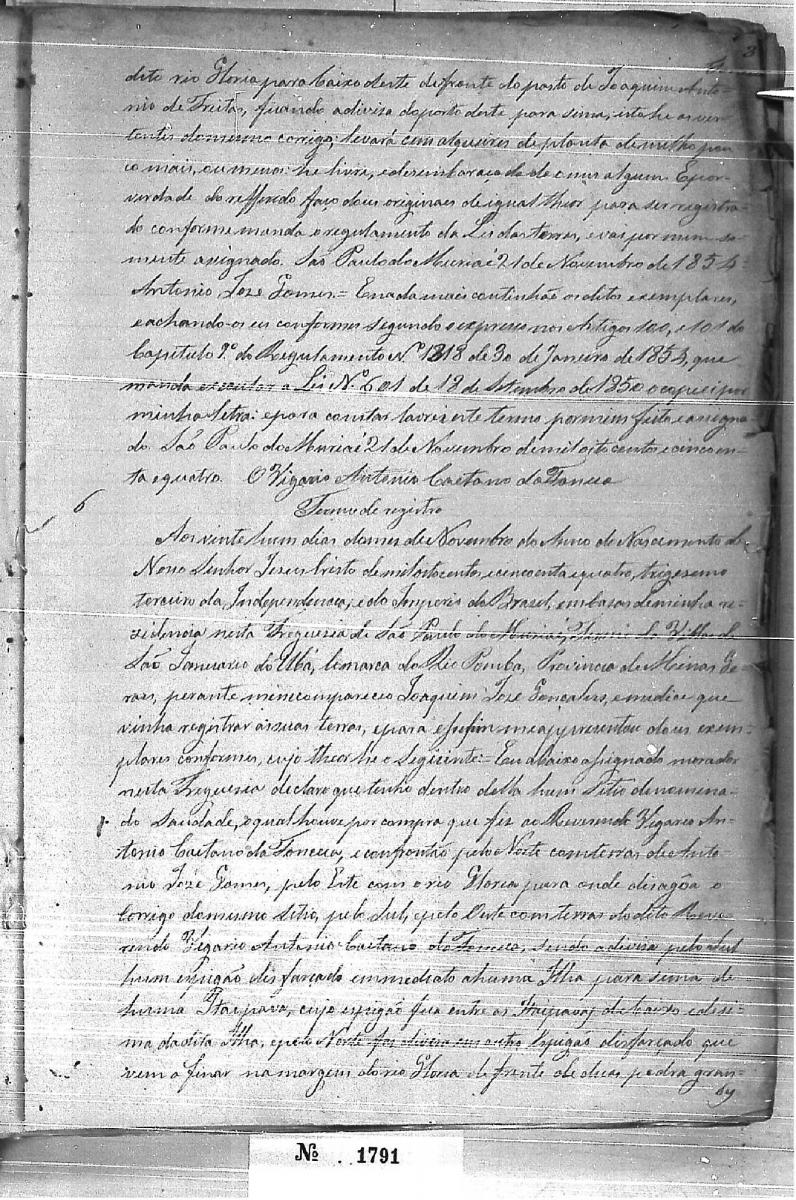 3
dito rio Gloria para baixo deste defronte do porto de Joaquim Anto-
nio de Freitas, ficando a divisa do porto deste para sima, isto he as ver
tentes do mesmo corrigo; levará cem alqueires de planta de milho pou
co mais, ou menos: he livre, e desembaraçada de onus algum. E por
verdade do refferido faço dous originaes de igual theor para ser registra-
do conforme manda o regulamento da Lei das terras, e vai por mim so-
mente asignado. São Paulo do Muriaé 21 de Novembro de 1854
Antonio Joze Gomes = E nada mais continhão os ditos exemplares,
e achando-os eu conformes segundo o expreso nos Artigos 100, e 101 do
Capitulo 9.º do Regulamento Nº 1318 de 30 de Janeiro de 1854, que
manda executar a Lei Nº 601 de 18 de Setembro de 1850 o copiei por
minha letra: e para constar lavrei este termo por mim feito e asigna-
do. São Paulo do Muriaé 21 de Novembro de mil oito centos e cincoen-
ta e quatro. O Vigario Antonio Caetano da Fonceca
6 Termo de registro
Aos vinte hum dias do mes de Novembro do Anno do Nascimento de
Noso Senhor Jesus Cristo de mil oito centos, e cincoenta e quatro, trigesimo
terceiro da Independencia, e do Imperio do Brasil, em casas de minha re-
zidencia nesta Freguesia de São Paulo do Muriaé, Termo da Villa de
São Januario do Ubá, Comarca do Rio Pomba, Provincia de Minas Ge-
raes, perante mim compareceo Joaquim Joze Gonçalves, e me dice que
vinha registrar as suas terras, e para esse fim me appresentou dous exem-
plares conformes, cujo theor he o seguinte: = Eu abaixo asignado morador
nesta Freguesia declaro que tenho dentro della hum Sitio denomena-
do Saudade, o qual houve por compra que fiz ao Reverendo Vigario An-
tonio Caetano da Fonceca, e confrontão pelo Norte com terras de Anto-
nio Joze Gomes, pelo Este com o rio Gloria para onde disagôa o
Corrigo do mesmo Sitio, pelo Sul, e pelo Oeste com terras do dito Reve-
rendo Vigario Antonio Caetano da Fonceca, sendo a divisa pelo Sul
hum espigão disfarçado emmediato a huma Ilha para sima de
huma Itaipava, cujo espigão fica entre as Itaipavas de baixo e de si-
ma da dita Ilha, e pelo Norte faz divisa em outro Espigão disfarçado que
vem a finar na margem do rio Gloria de frente de duas pedra gran-
des
Nº 1791